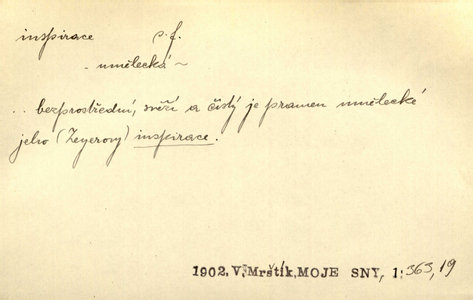 inspirace s.f.
- umělecká ~
.. bezprostřední, svěží a čistý je pramen umělecké
jeho (Zeyerovy) inspirace.
1902, V. Mrštík, MOJE SNY, 1: 363, 19